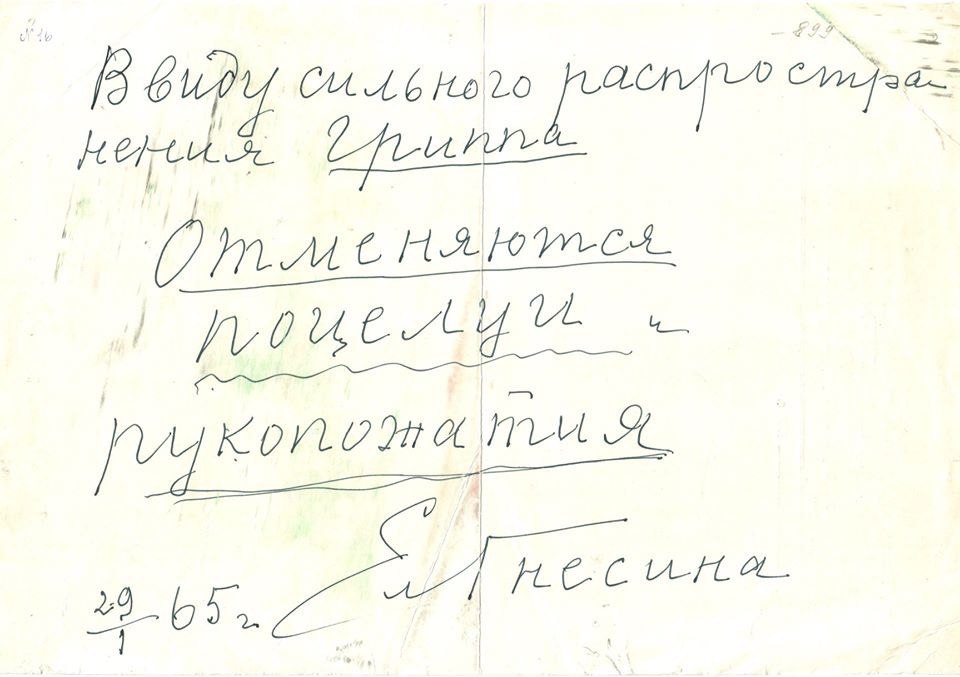 № 16
- 899
В виду сильного распростра-
нения Гриппа
Отменяются
поцелуи и
рукопожатия
Ел Гнесина
29/1 65 г.